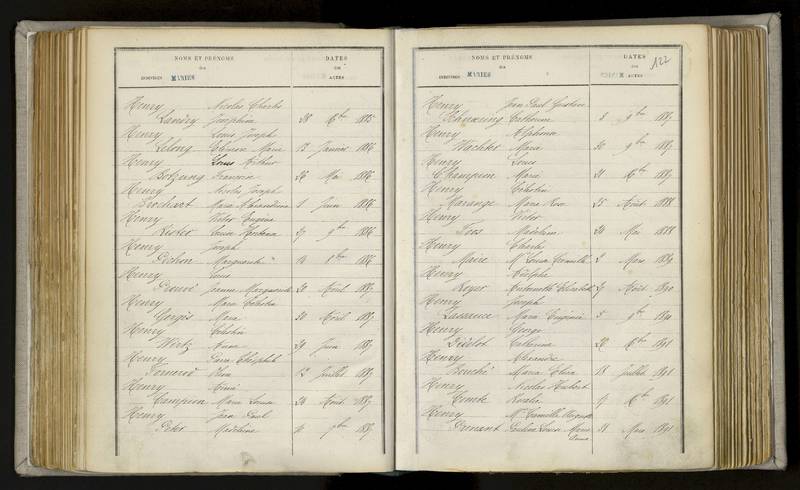 NOMS ET PRÉNOMS
des
INDIVIDUS MARIÉS
DATES
des
ACTES
Henry Nicolas Charles
Landry Joséphine 28 Xbre 1885
Henry Louis Joseph
Lelong Marie 13 Janvier 1886
Henry Louis Arthur
Botzung Françoise 26 Mai 1886
Henry Nicolas Joseph
Brochart Marie 1 Juin 1886
Henry Victor Eugène
Lister Louise 27 9bre 1886
Henry Joseph
Pichon Marguerite 14 1886
Henry Louis
Jeanne Marguerite 20 Avril 1887
Henry Marie
Gorgis Marie 30 Avril 1887
Henry Célestin
Wirtz Anna 29 Juin 1887
Henry Théophile
12 Juillet 1887
Henry Aimé
Campion Marie Louise 24 Août 1887
Henry Jean Paul
Peter Madeleine 7bre 1887
NOMS ET PRÉNOMS
des
INDIVIDUS MARIÉS
DATES
des
ACTES
122
Henry Jean Paul Gustave
Catherine 8 9bre 1887
Henry Alphonse
Wachter Marie 30 9bre 1887
Henry Louis
Champion Marie 21 Xbre 1887
Henry Célestin
Marange Marie Rose 25 Août 1888
Henry Victor
Madeleine 24 Mai 1888
Henry Charles
Maire Mie Louise Camille 2 Mars 1889
Henry Adolphe
Royer Antoinette Elisabeth 27 Août 1890
Henry Joseph
Lassance Marie Eugénie 5 9bre 1890
Henry George
Didelot Catherine 26 Xbre 1891
Henry Alexandre
Bouché Marie Elisa 18 Juillet 1891
Henry Nicolas Hubert
Comte Rosalie 17 Xbre 1891
Henry Mie Camille Auguste
Pauline Louise Marie 31 Mars 1891
Anna